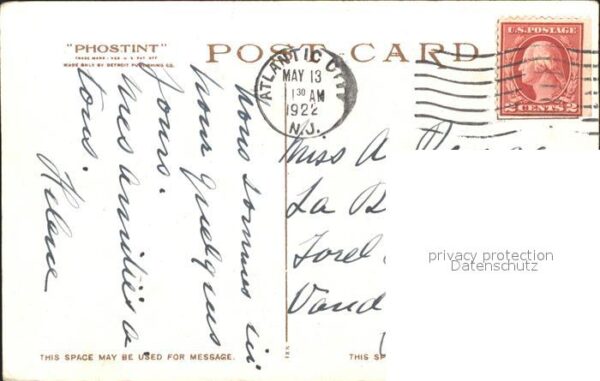 "PHOSTINT"
TRADE MARK - REG U.S. PAT. OFF.
MADE ONLY BY DETROIT PUBLISHING CO.
POST CARD
ATLANTIC CITY
MAY 13
1 30 AM
1922
N.J.
U.S. POSTAGE
2 CENTS 2
nous sommes ici
pour quelques
jours.
mes amitiés à
tous.
Helene
Miss A
La B
Forel
Vaud
privacy protection
Datenschutz
THIS SPACE MAY BE USED FOR MESSAGE.
THIS SP